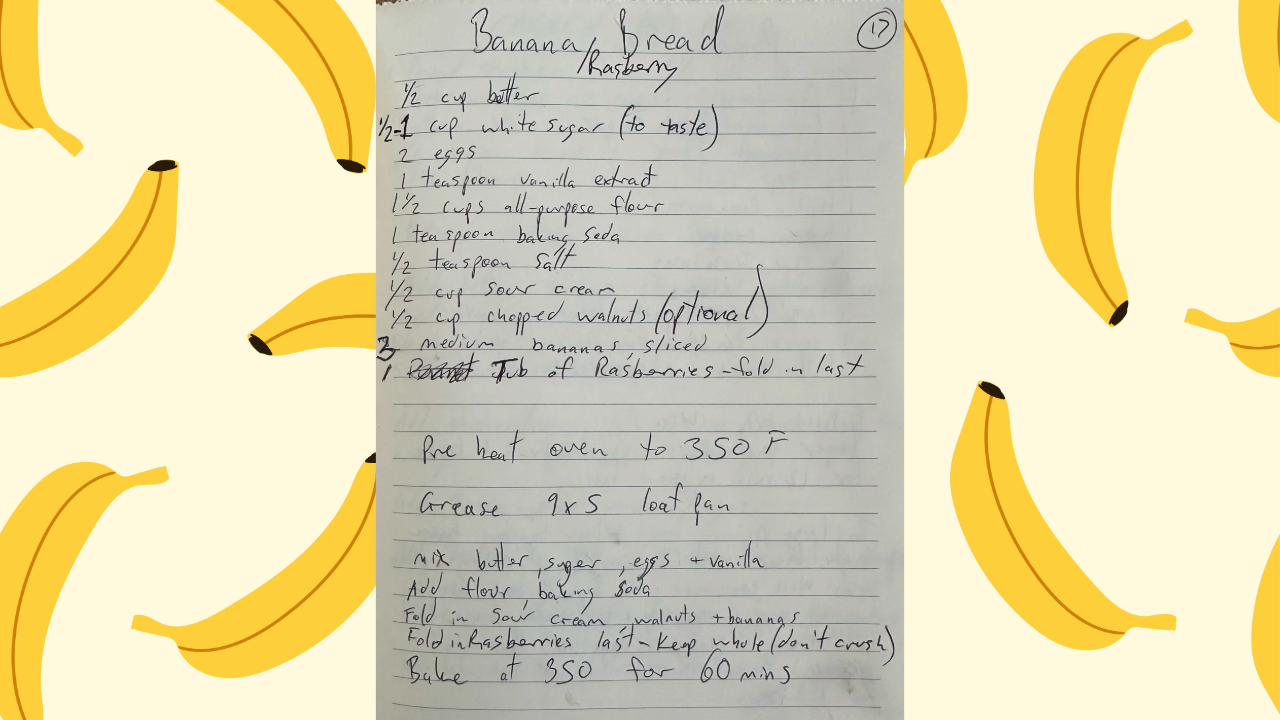 Banana Bread
17
/Rasberry
1/2 cup butter
1/2-1 cup white sugar (to taste)
2 eggs
1 teaspoon vanilla extract
1 1/2 cups all-purpose flour
1 teaspoon baking soda
1/2 teaspoon salt
1/2 cup sour cream
1/2 cup chopped walnuts (optional)
3 medium bananas, sliced
1 Tub of Rasberries - fold in last
Pre heat oven to 350 F
Grease 9x5 loaf pan
mix butter, suger, eggs + vanilla
Add flour, baking soda
Fold in sour cream walnuts + bananas
Fold in Rasberries last - Keep whole (don't crush)
Bake at 350 for 60 mins